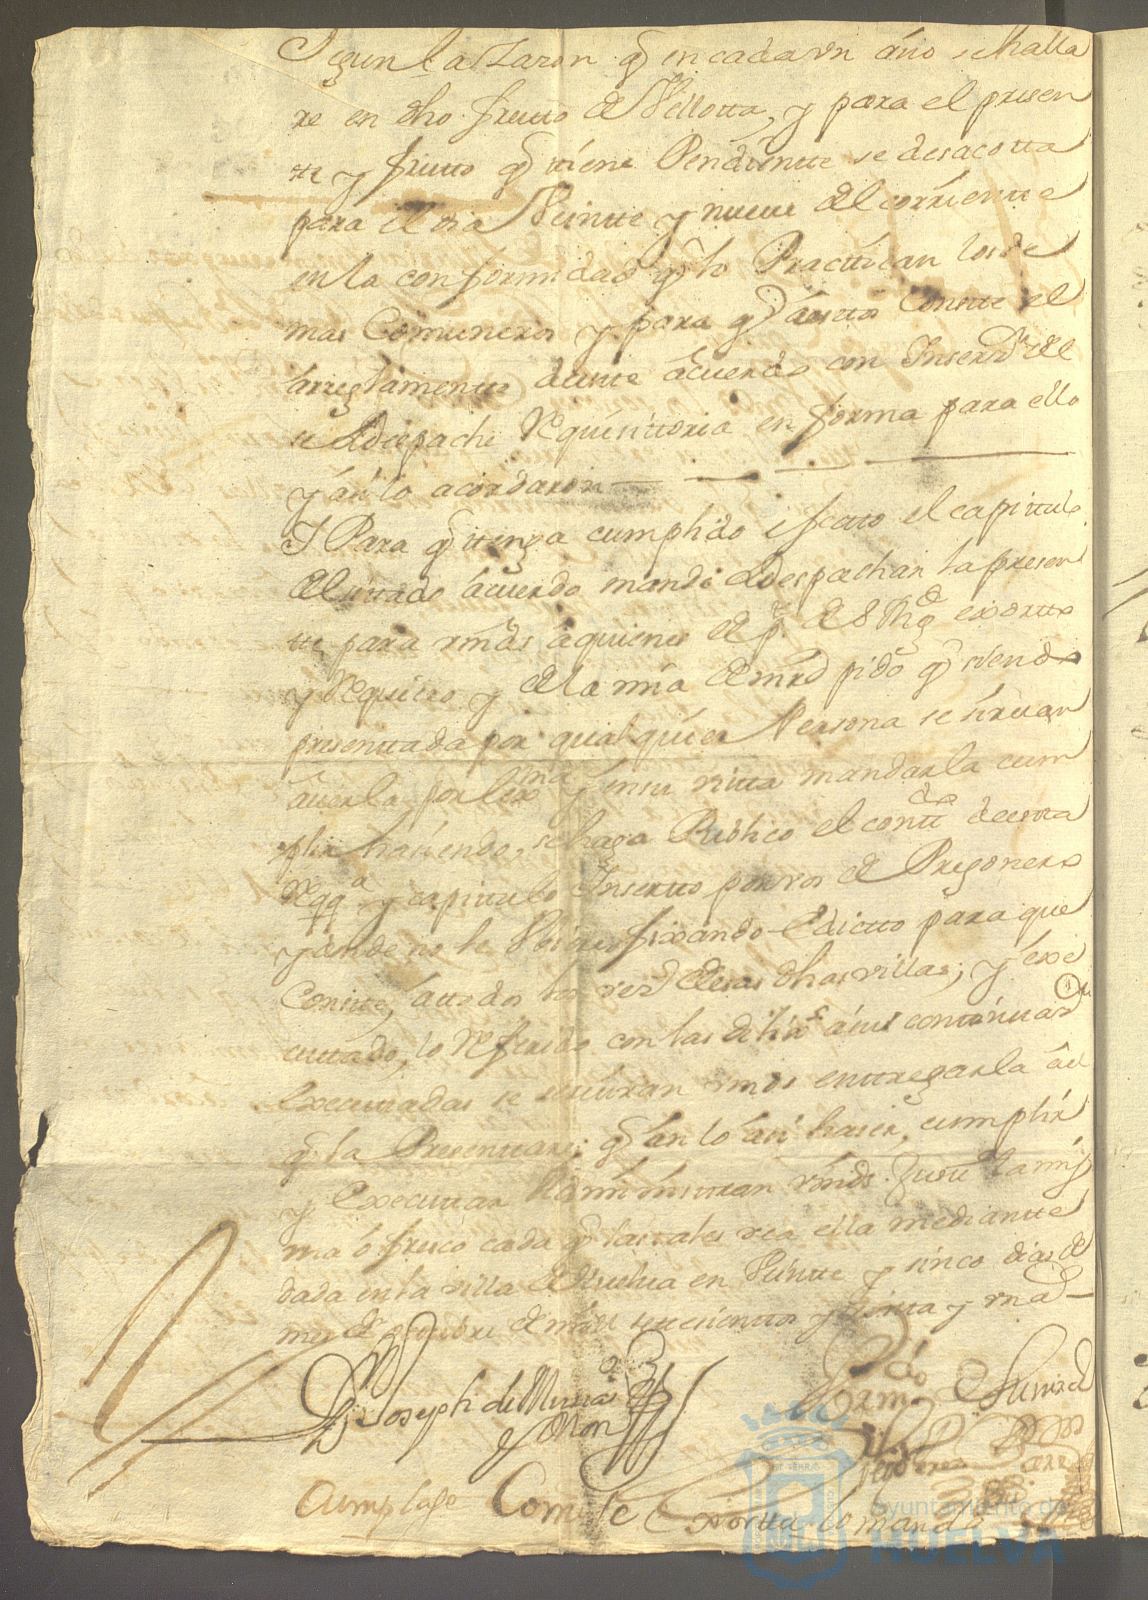 Segun la razon q̃ en cada vn año se halla
re en dho frutto de Vellotta, y para el presen
te y frutto q̃ tiene Pendiente se desacotta
para el dia Veintte y nueue del corriente
en la conformidad q̃ lo Practtican los de
mas Comuneros y para q̃ a esttos Conste el
arreglamento de este acuerdo con Inserz.n del
se despache Requisittoria en forma para ello
y asi lo acordaron
Y Para q̃ ttenga cumplido efectto el capittulo
del cittado acuerdo mande despachar la presen
tte para vmds a quienes de p.te de S Mag.d exortto
y Requiero y de la mia de mrd pido q̃ siendo
presenttada por qualquier Persona se siruan
auerla por lex.ma y en su vistta mandarla cum
plir haciendo, se haga Publico el cont.do de estta
Reqq.a y capittulo Insertto por vos de Pregonero
y donde no le Vbiere fixando Edictto para que
Conste, a ttodos los vez.s de esas dhas villas; y exe
cuttado, lo Referido con las dilix.s a su conttinuaz.on
Executtadas se seruiran vmds enttregarla a el
q̃ la Presenttare; q̃ en lo asi hacer, cumplir
y Executtar Administtran vmds Justt.a la mis
ma ofresco cada q̃ las tales vea ella mediantte
dada en la villa de Huelua en Veintte y sinco dias del
mes de octtubre de mill settecienttos y treinta y un a.s
D.n Joseph de Mora
y Mon
Por m.do de su mrd
Cumplase Comitte Exortto lo mando
Ayuntamiento de
HUELVA